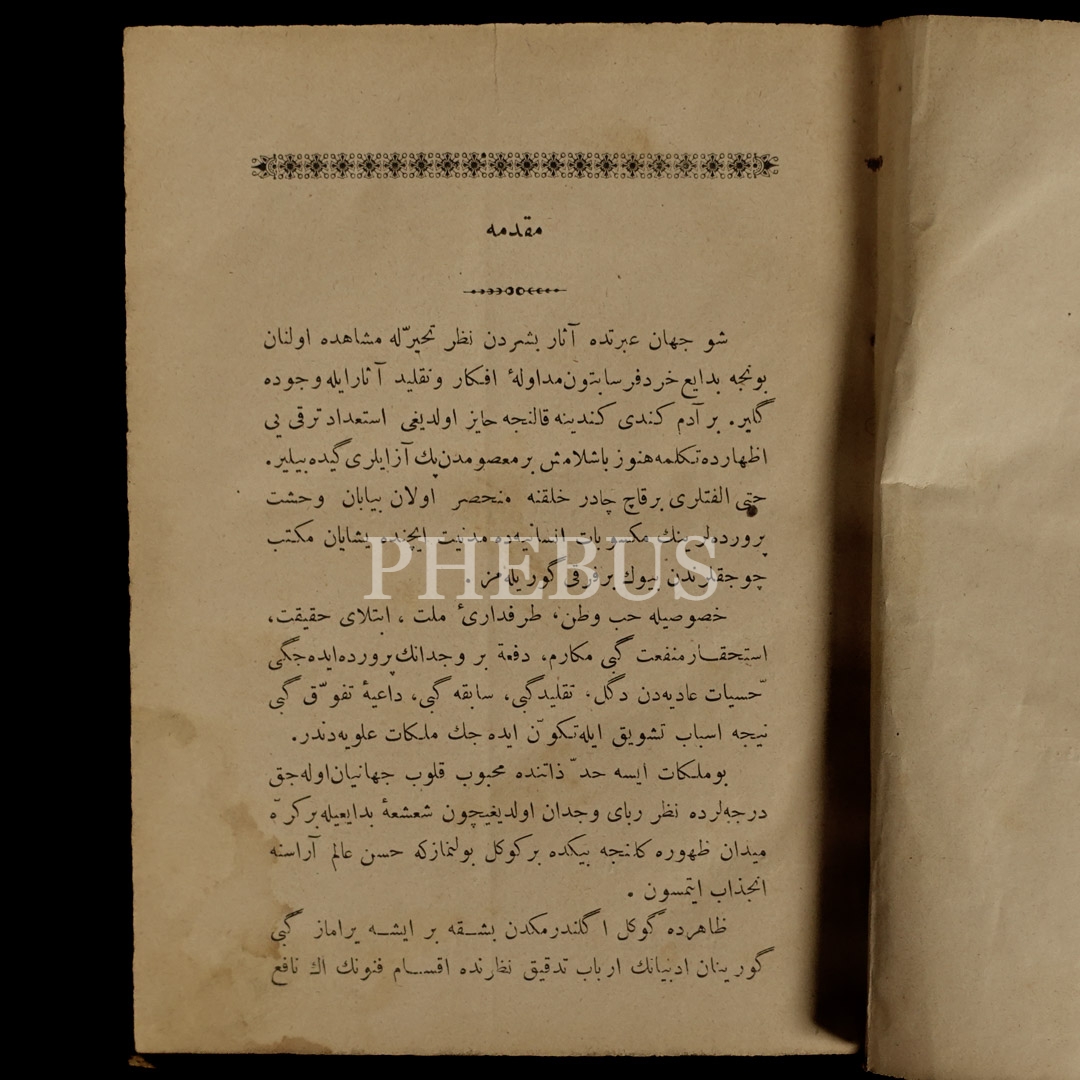 مقدمه
شو جهان عبرتده آثار بشردن نظر تحیرّله مشاهده اولنان
بونجه بدایع خردفرسا بتون مداولهٔ افکار و تقلید آثار ایله وجوده
گلیر. بر آدم کندی کندینه قالنجه حایز اولدیغی استعداد ترقی یی
اظهارده تکلمه هنوز باشلامش بر معصومدن پك آز ایلری گیده بیلیر.
حتی الفتلری برقاچ چادر خلقنه منحصر اولان بیابان وحشت
پرورده لرینك مکسوبات انسانیه ده مدنیت ایچنده یشایان مکتب
چوجقلرندن بیوك بر فرقی گوریله مز .
PHEBUS
خصوصیله حب وطن، طرفداریٔ ملت ، ابتلای حقیقت،
استحقار منفعت گبی مکارم، دفعة بر وجدانك پرورده ایده جگی
حسّیات عادیه دن دگل، تقلید گبی، سابقه گبی، داعیهٔ تفوّق گبی
نیجه اسباب تشویق ایله تکوّن ایده جك ملکات علویه دندر.
بو ملکات ایسه حدّ ذاتنده محبوب قلوب جهانیان اوله جق
درجه لرده نظر ربای وجدان اولدیغیچون شعشعهٔ بدایعیله بر کرّه
میدان ظهوره کلنجه بیکده بر کوکل بولنمازکه حسن عالم آراسنه
انجذاب ایتمسون .
ظاهرده گوکل اگلندرمکدن بشقه بر ایشه یراماز گبی
گورینان ادبیاتك ارباب تدقیق نظرنده اقسام فنونك اڭ نافع